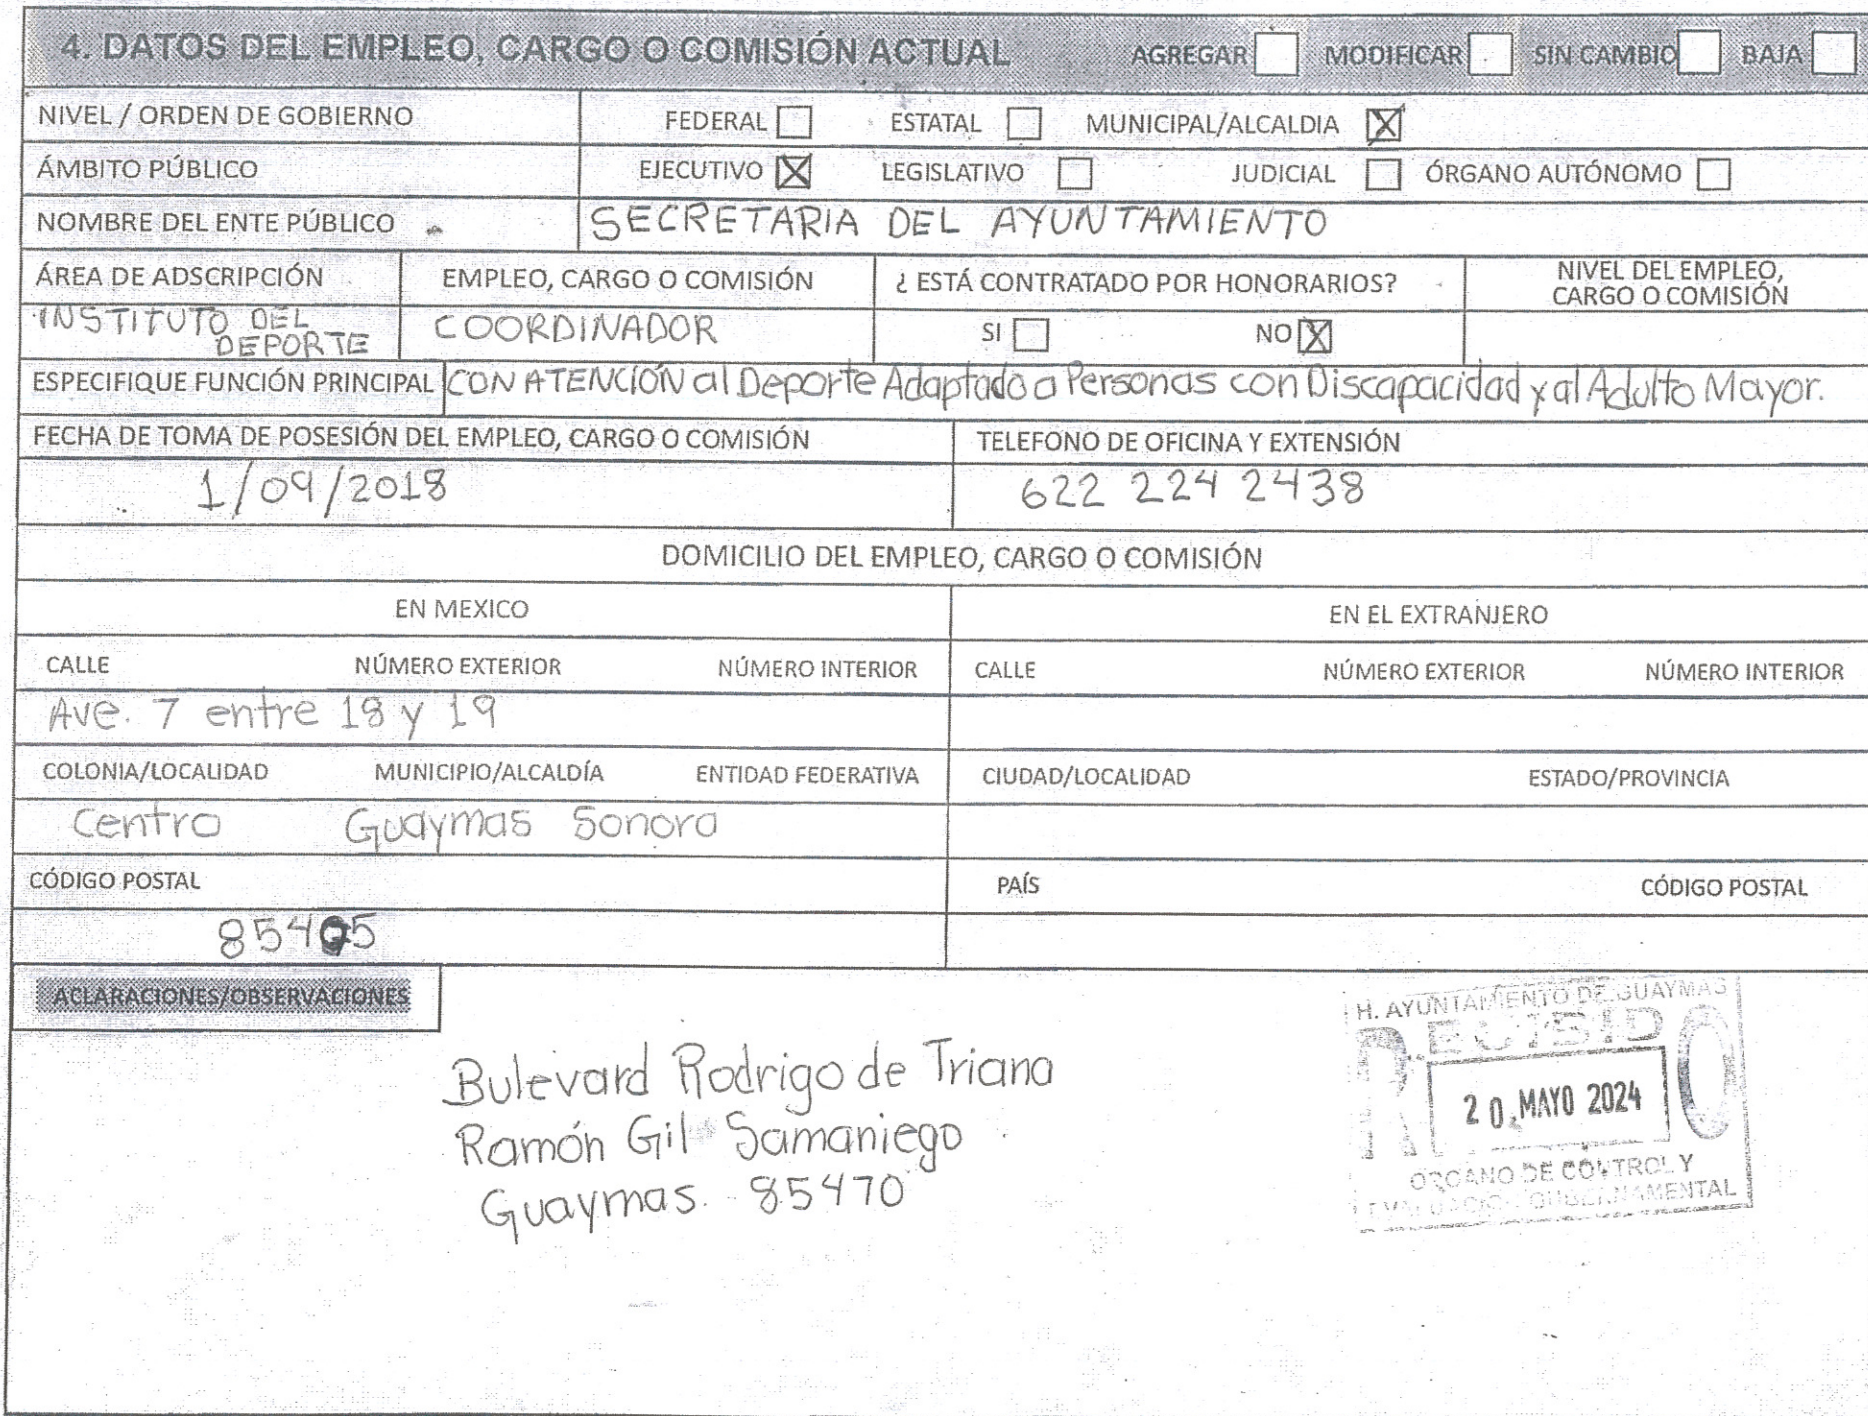 4. DATOS DEL EMPLEO, CARGO O COMISIÓN ACTUAL AGREGAR MODIFICAR SIN CAMBIO BAJA
NIVEL / ORDEN DE GOBIERNO FEDERAL ESTATAL MUNICIPAL/ALCALDIA X
ÁMBITO PÚBLICO EJECUTIVO X LEGISLATIVO JUDICIAL ÓRGANO AUTÓNOMO
NOMBRE DEL ENTE PÚBLICO SECRETARIA DEL AYUNTAMIENTO
ÁREA DE ADSCRIPCIÓN EMPLEO, CARGO O COMISIÓN ¿ ESTÁ CONTRATADO POR HONORARIOS? NIVEL DEL EMPLEO,
CARGO O COMISIÓN
INSTITUTO DEL
DEPORTE COORDINADOR SI NO X
ESPECIFIQUE FUNCIÓN PRINCIPAL CON ATENCIÓN al Deporte Adaptado a Personas con Discapacidad y al Adulto Mayor.
FECHA DE TOMA DE POSESIÓN DEL EMPLEO, CARGO O COMISIÓN TELEFONO DE OFICINA Y EXTENSIÓN
1/09/2018 622 224 2438
DOMICILIO DEL EMPLEO, CARGO O COMISIÓN
EN MEXICO EN EL EXTRANJERO
CALLE NÚMERO EXTERIOR NÚMERO INTERIOR CALLE NÚMERO EXTERIOR NÚMERO INTERIOR
Ave. 7 entre 18 y 19
COLONIA/LOCALIDAD MUNICIPIO/ALCALDÍA ENTIDAD FEDERATIVA CIUDAD/LOCALIDAD ESTADO/PROVINCIA
Centro Guaymas Sonora
CÓDIGO POSTAL PAÍS CÓDIGO POSTAL
ACLARACIONES/OBSERVACIONES
Bulevard Rodrigo de Triana
Ramón Gil Samaniego
Guaymas. 85470
H. AYUNTAMIENTO DE GUAYMAS
RECIBIDO
20 MAYO 2024
ORGANO DE CONTROL Y
EVALUACION GUBERNAMENTAL